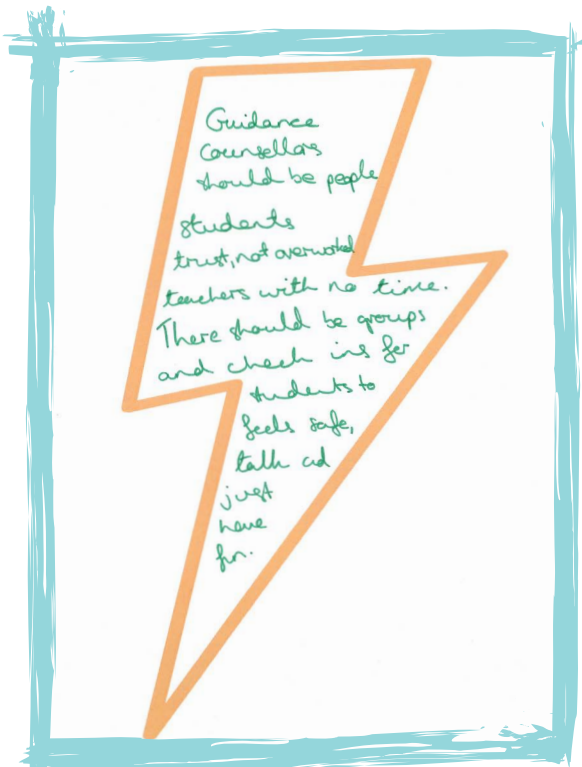 Guidance
Counsellors
should be people
students
trust, not overworked
teachers with no time.
There should be groups
and check ins for
students to
feels safe,
talk ad
just
have
fun.